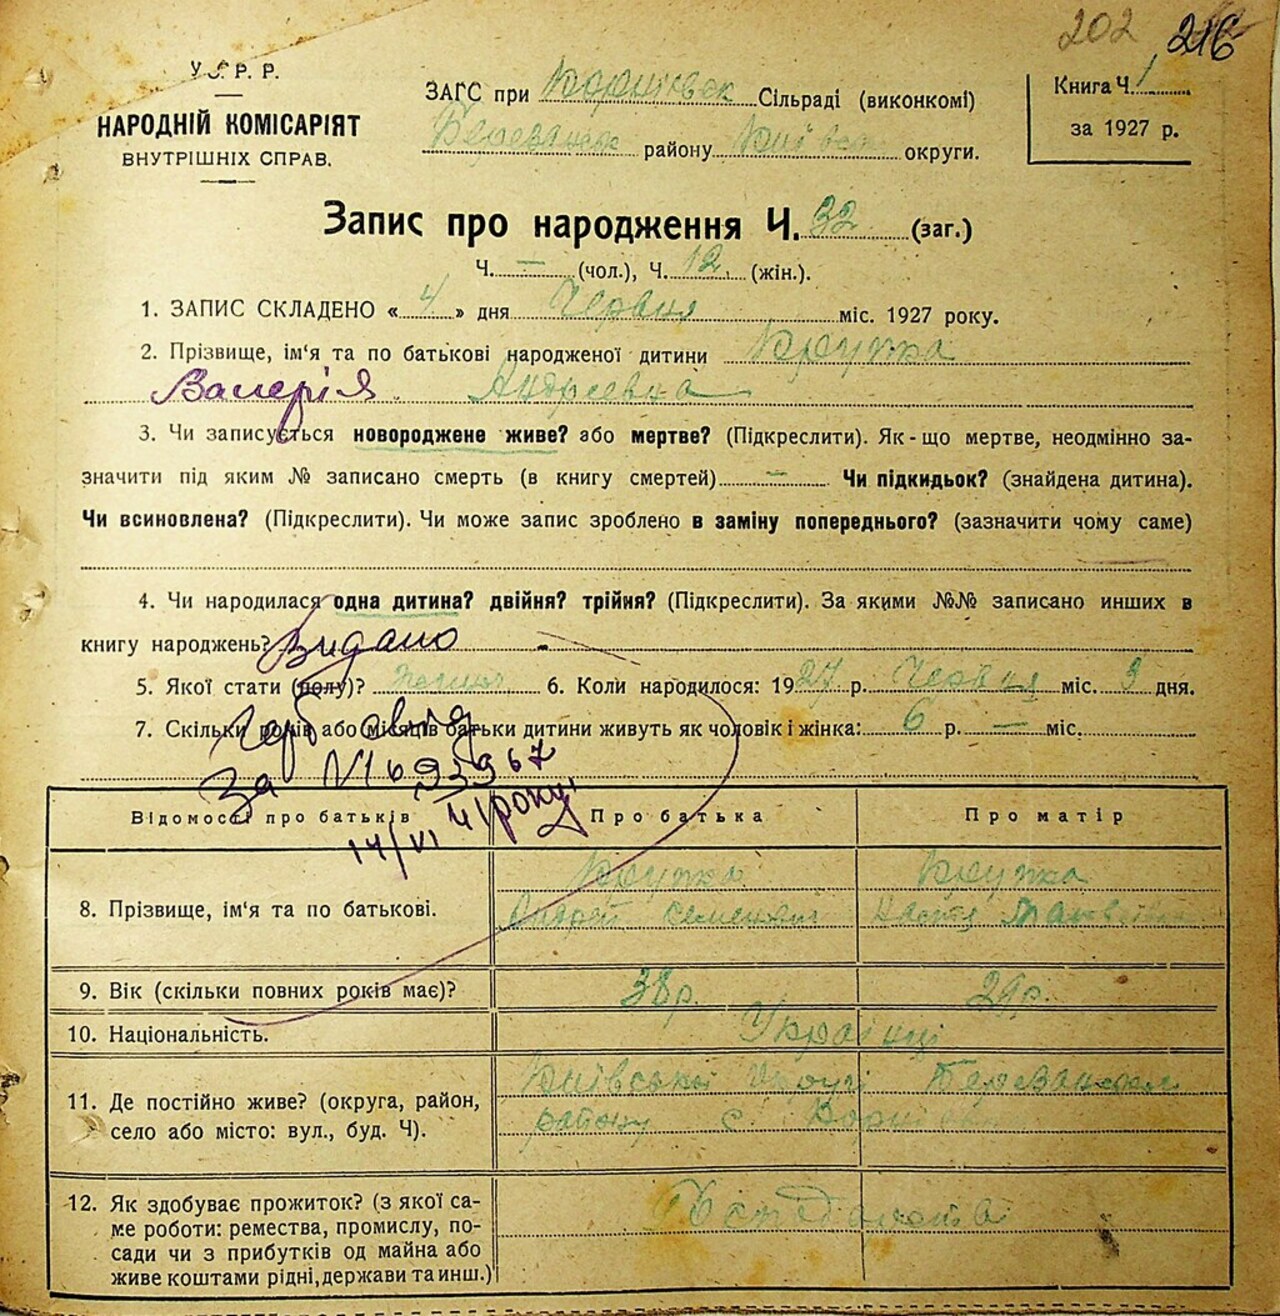 202 216
У. Р. Р.
НАРОДНІЙ КОМІСАРІЯТ
ВНУТРІШНІХ СПРАВ.
ЗАГС при Сільраді (виконкомі)
Березанськ району Київськ округи.
Книга Ч. 1
за 1927 р.
Запис про народження Ч. 32 (заг.)
Ч. — (чол.), Ч. 12 (жін.).
1. ЗАПИС СКЛАДЕНО « 4 » дня Червня міс. 1927 року.
2. Прізвище, ім'я та по батькові народженої дитини Крупка
Валерія Андреевна
3. Чи записується новороджене живе? або мертве? (Підкреслити). Як-що мертве, неодмінно за-
значити під яким № записано смерть (в книгу смертей) — Чи підкидьок? (знайдена дитина).
Чи всиновлена? (Підкреслити). Чи може запис зроблено в заміну попереднього? (зазначити чому саме)
4. Чи народилася одна дитина? двійня? трійня? (Підкреслити). За якими №№ записано инших в
книгу народжень? Видано
5. Якої стати (полу)? 6. Коли народилося: 1927 р. Червня міс. 3 дня.
7. Скільки років або місяців батьки дитини живуть як чоловік і жінка: 6 р. — міс.
за №
14/VI 41 року
Відомості про батьків Про батька Про матір
Крупка Крупка
8. Прізвище, ім'я та по батькові. Андрей Семенов
9. Вік (скільки повних років має)? 38р. 29р.
10. Національність. Українці
11. Де постійно живе? (округа, район, Київської Округи Березанськ
село або місто: вул., буд. Ч). району с.
12. Як здобуває прожиток? (з якої са-
ме роботи: ремества, промислу, по-
сади чи з прибутків од майна або
живе коштами рідні, держави та инш.)